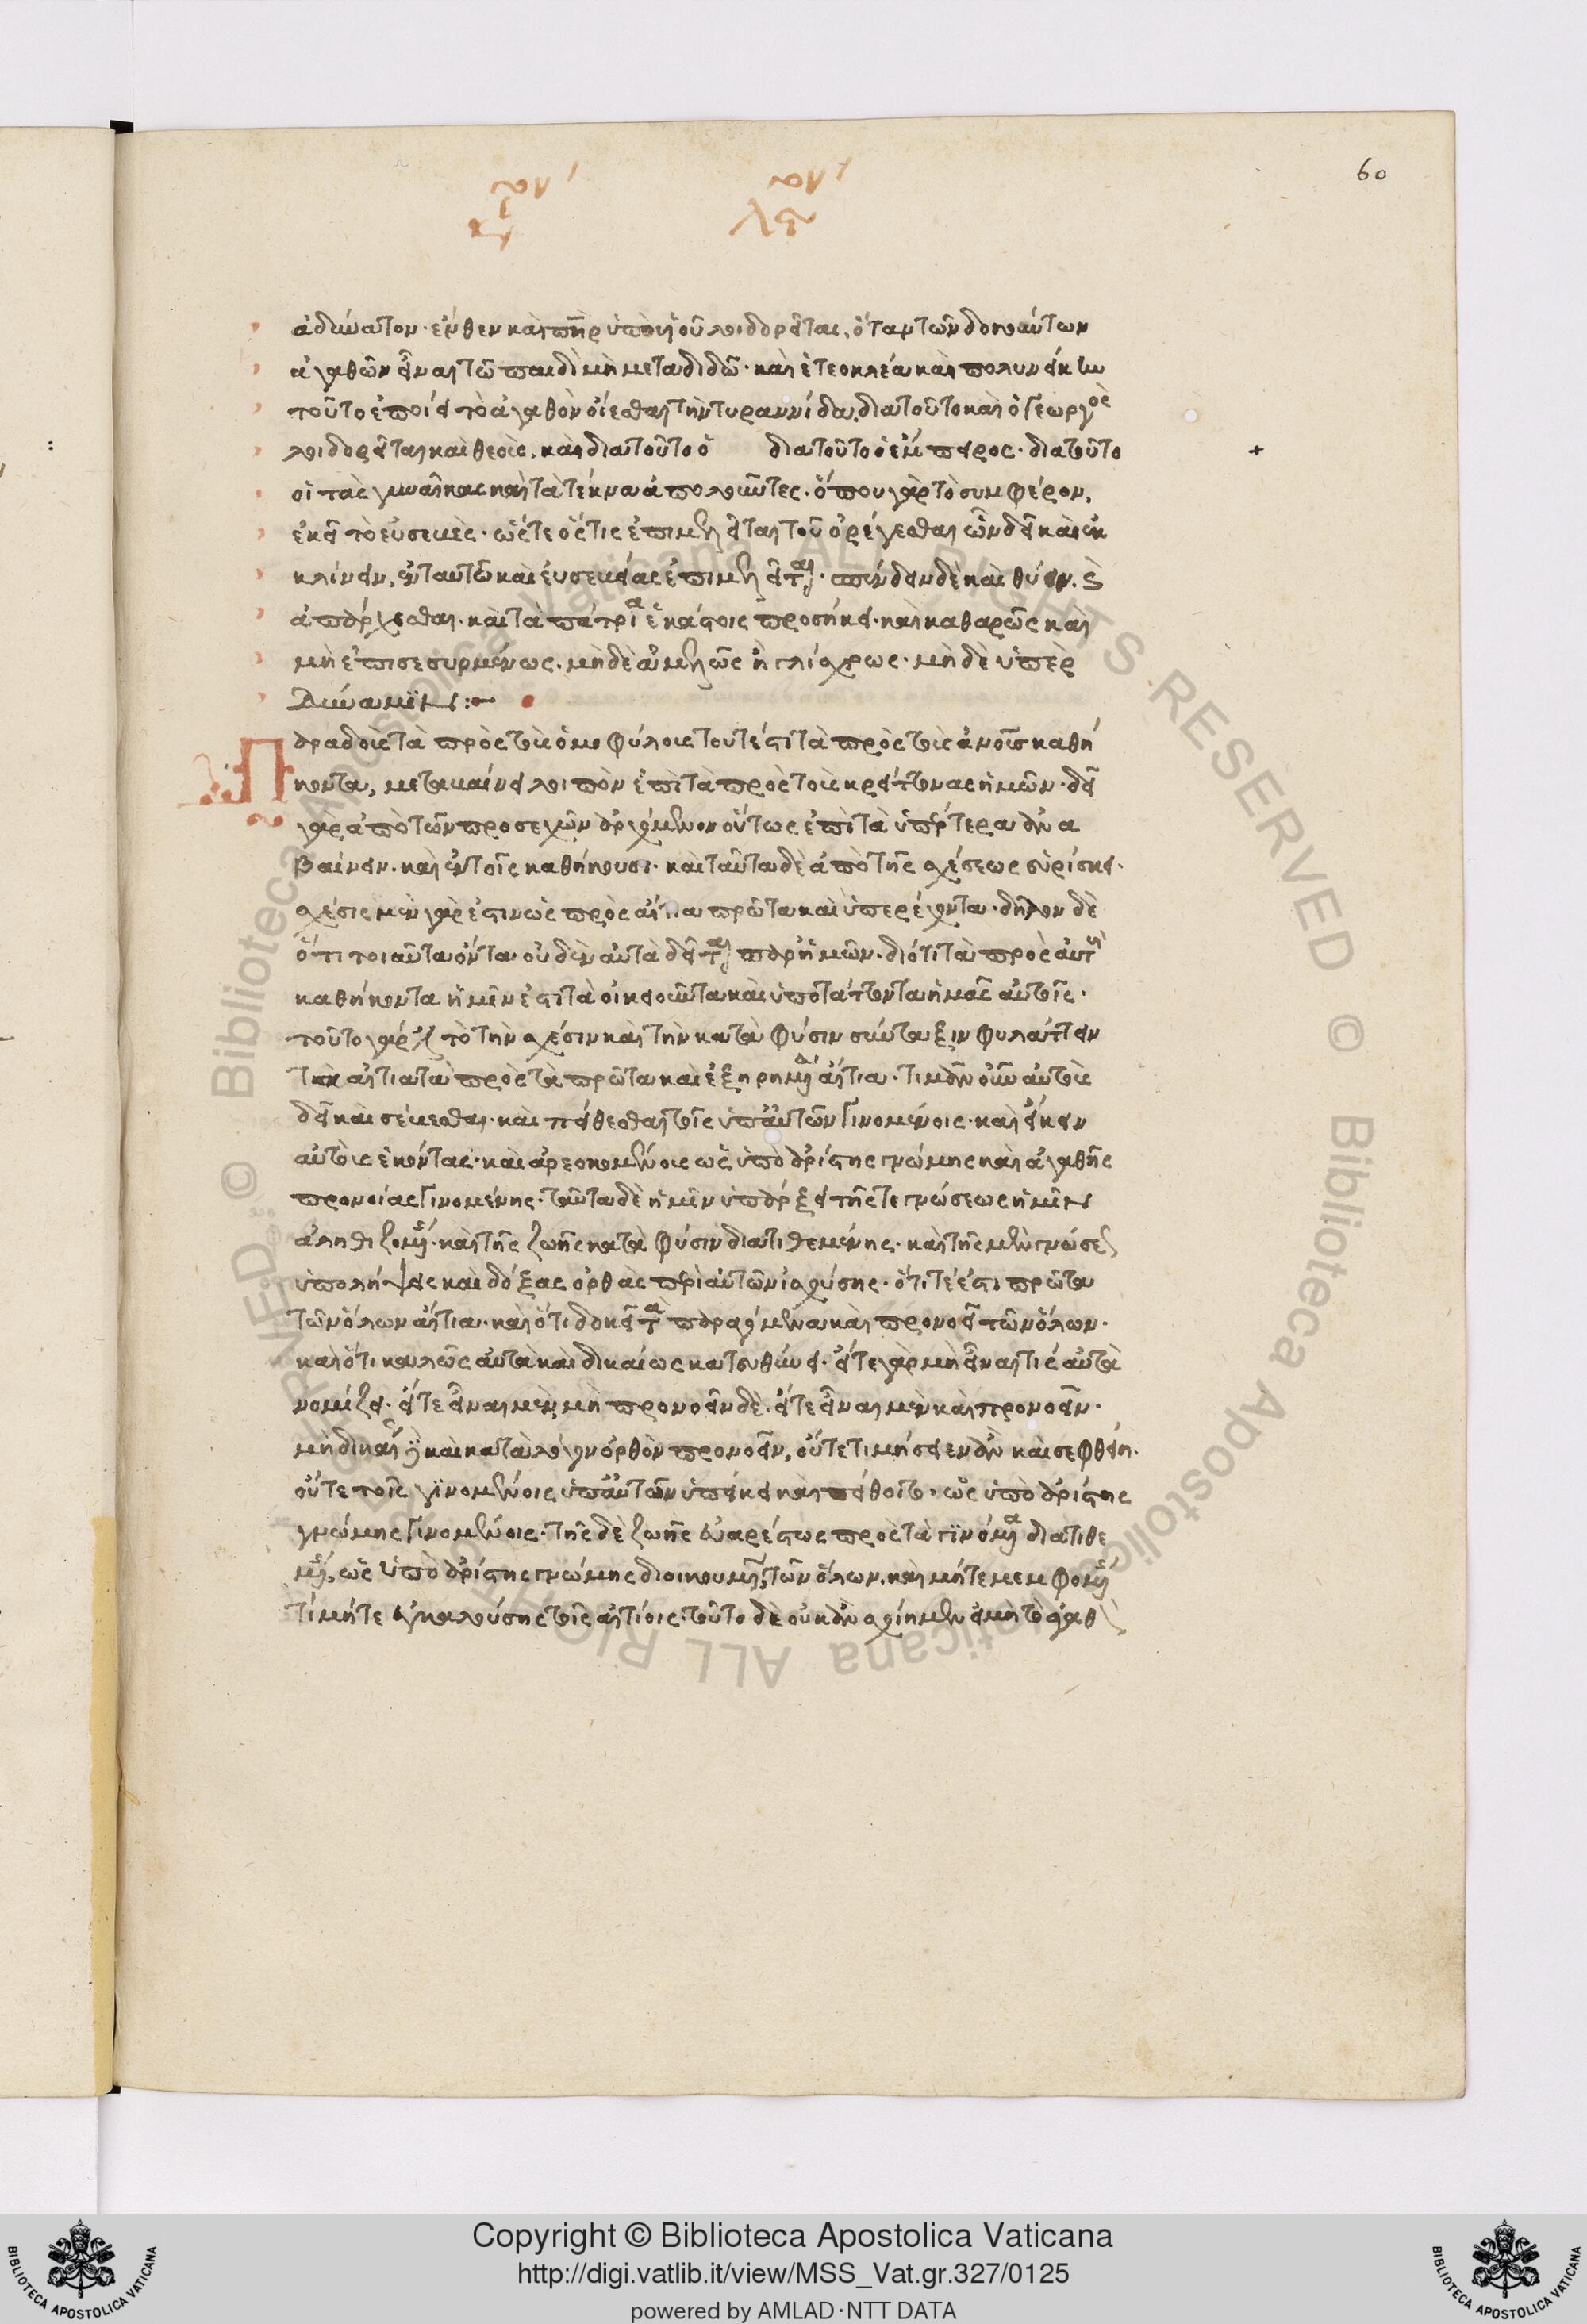 60
ἀδύνατον· ἔνθεν καὶ πηρ ὑπὸ υἱοῦ λοιδορεῖται, ὅταν τῶν δοκούντων
ἀγαθῶν εἶναι τῷ παιδὶ μὴ μεταδιδῶ· καὶ ἐτεοκλέα καὶ πολυνείκην
τοῦτο ἐποίει τὸ ἀγαθὸν οἴεσθαι τὴν τυραννίδα, διατοῦτο καὶ ὁ γεωργὸς
λοιδορεῖται καὶ θεοῖς, καὶ διατοῦτο ὁ διατοῦτο ὁ ἔμπορος· διατοῦτο
οἱ τὰς γυναῖκας καὶ τὰ τέκνα ἀπολλῦντες· ὅπου γὰρ τὸ συμφέρον,
ἐκεῖ τὸ εὐσεβές· ὥστε ὅστις ἐπιμελεῖται τοῦ ὀρέγεσθαι ὧν δεῖ καὶ ἐκ
κλίνειν, ἐν ταυτῷ καὶ εὐσεβείας ἐπιμελεῖται· σπένδειν δὲ καὶ θύειν. καὶ
ἀπάρχεσθαι. κατὰ πάτρια ἑκάστοις προσήκει· καὶ καθαρῶς καὶ
μὴ ἐπισεσυρμένως. μηδὲ ἀμελῶς ἢ γλίσχρως· μηδὲ ὑπὲρ
δύναμιν:
Παραδοὺς τὰ πρὸς τοὺς ὁμοφύλους τουτέστι τὰ πρὸς τοὺς ἀνους καθή
κοντα, μεταβαίνει λοιπὸν ἐπὶ τὰ πρὸς τοὺς κρείττονας ἡμῶν· δεῖ
γὰρ ἀπὸ τῶν προσεχῶν ἀρχόμενον οὕτως ἐπὶ τὰ ὑπέρτερα ἀνα
βαίνειν. καὶ ἐν τοῖς καθήκουσι· καὶ ταῦτα δὲ ἀπὸ τῆς σχέσεως εὑρίσκει·
σχέσις μὲν γάρ ἐστιν ὡς πρὸς αἴτια πρῶτα καὶ ὑπερέχοντα· δῆλον δὲ
ὅτι τοιαῦτα ὄντα· οὐδὲν αὐτὰ δεῖται παρ' ἡμῶν. διότι τὰ πρὸς αὐτὰ
καθήκοντα ἡμῖν ἐστι τὰ οἰκειοῦντα καὶ ὑποτάττοντα ἡμᾶς αὐτοῖς·
τοῦτο γάρ ἐστι τὸ τὴν σχέσιν καὶ τὴν κατὰ φύσιν σύνταξιν φυλάττειν
τὰ αἰτιατὰ πρὸς τὰ πρῶτα καὶ ἐξῃρημένα αἴτια· τιμᾶν οὖν αὐτοὺς
δεῖ καὶ σέβεσθαι· καὶ πείθεσθαι τοῖς ὑπ' αὐτῶν γινομένοις· καὶ εἴκειν
αὐτοῖς ἑκόντας· καὶ ἀρεσκομένοις ὡς ὑπὸ ἀρίστης γνώμης καὶ ἀγαθῆς
προνοίας γινομένης· ταῦτα δὲ ἡμῖν ὑπάρξει τῆς τε γνώσεως ἡμῖν
ἀληθιζομένης· καὶ τῆς ζωῆς κατὰ φύσιν διατιθεμένης· καὶ τῆς μὲν γνώσεως
ὑπολήψεις καὶ δόξας ὀρθὰς περὶ αὐτῶν ἰσχούσης· ὅτι τέ ἐστι πρῶτα
τῶν ὅλων αἴτια· καὶ ὅτι διοικεῖ τὰ παραγόμενα καὶ προνοεῖ τῶν ὅλων·
καὶ ὅτι καλῶς αὐτὰ καὶ δικαίως κατευθύνει· εἴτε γὰρ μὴ εἶναι τις αὐτὰ
νομίζει· εἴτε εἶναι μὲν μὴ προνοεῖν δέ· εἴτε εἶναι μὲν καὶ προνοεῖν·
μὴ δικαίως δὲ καὶ κατὰ λόγον ὀρθὸν προνοεῖν, οὔτε τιμήσειεν ἂν καὶ σεφθείη·
οὔτε τοῖς γινομένοις ὑπ' αὐτῶν ὑπείκει καὶ πείθοιτο· ὡς ὑπὸ ἀρίστης
γνώμης γινομένοις· τῆς δὲ ζωῆς εὐαρέστως πρὸς τὰ γινόμενα διατιθε
μένης, ὡς ὑπὸ ἀρίστης γνώμης διοικουμένης τῶν ὅλων. καὶ μήτε μεμφομένης
τί μήτε ἐγκαλούσης τοῖς αἰτίοις· τοῦτο δὲ οὐκ ἂν σχοίη μὲν εἰ μὴ τὸ ἀγαθὸν
Copyright © Biblioteca Apostolica Vaticana
http://digi.vatlib.it/view/MSS_Vat.gr.327/0125
powered by AMLAD·NTT DATA
BIBLIOTECA APOSTOLICA VATICANA
BIBLIOTECA APOSTOLICA VATICANA